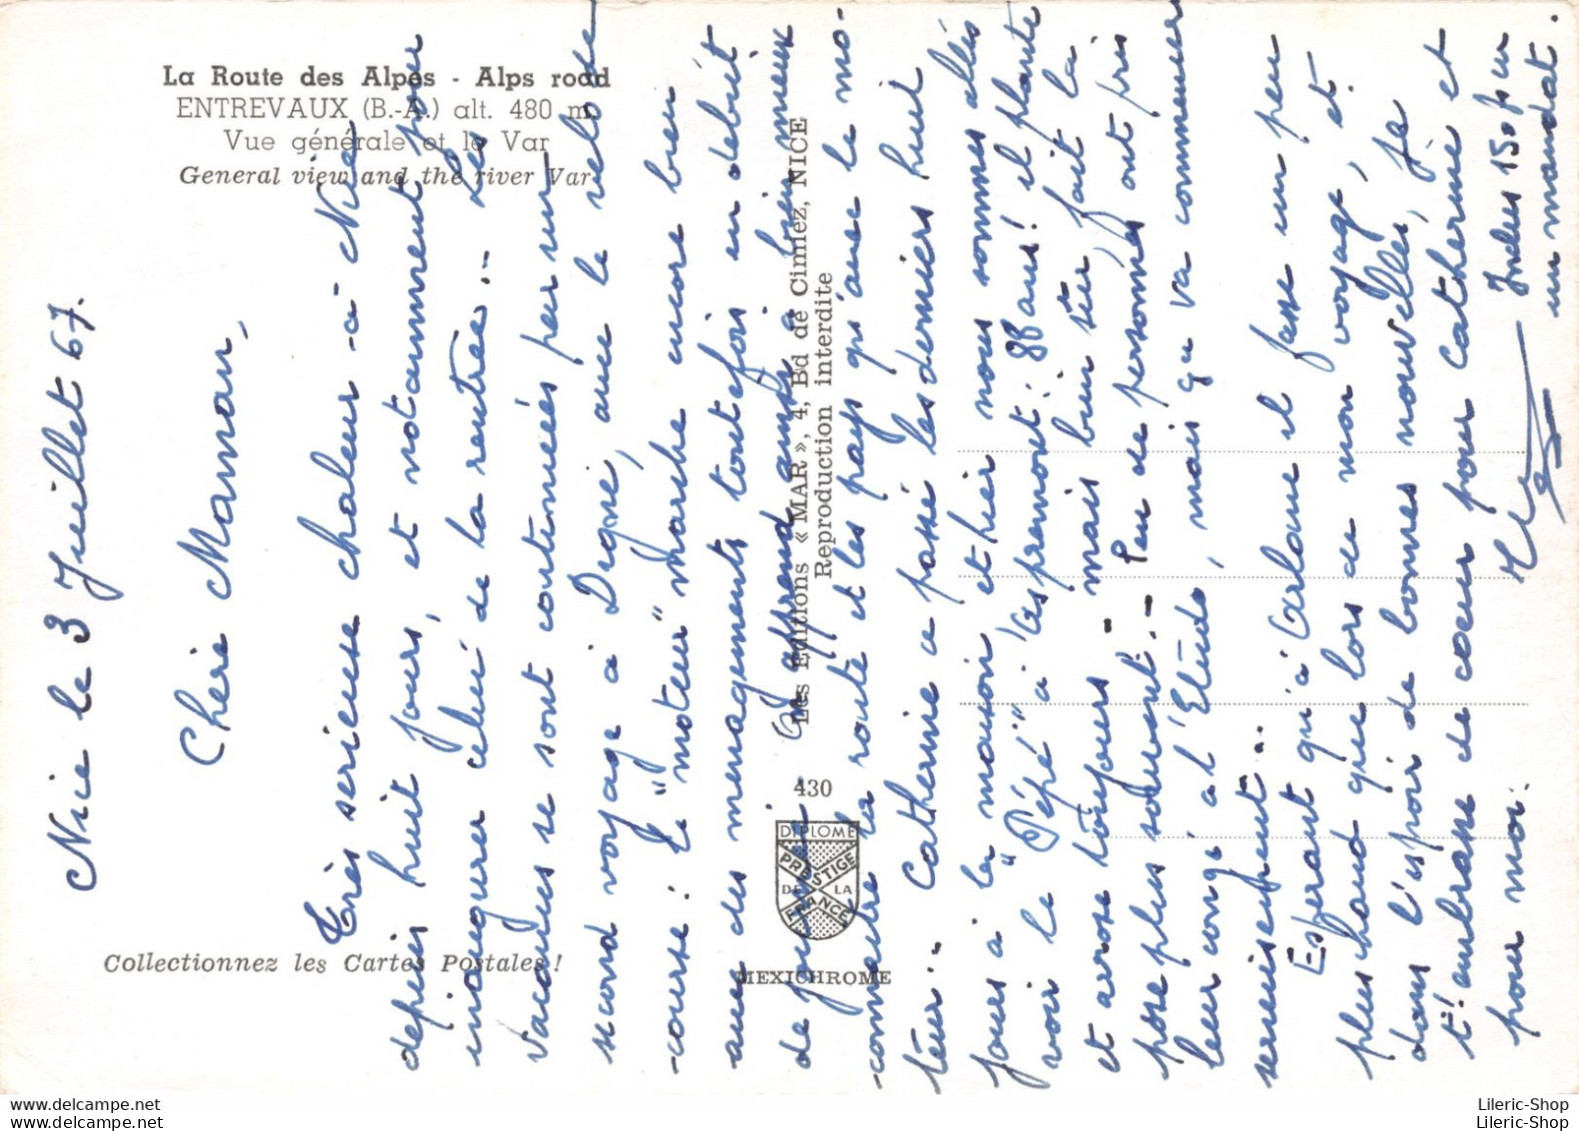 La Route des Alpes - Alps road
ENTREVAUX (B.-A.) alt. 480 m.
Vue générale et le Var
General view and the river Var
Collectionnez les Cartes Postales !
Les Editions « MAR », 4, Bd de Cimiez, NICE
Reproduction interdite
430
DIPLOME
PRESTIGE
DE LA
FRANCE
MEXICHROME
Nice le 3 Juillet 67.
Chère Maman,
Très serieuse chaleur à Nice
depuis huit jours, et notamment pour
inaugurer celui de la rentrée.- Les
vacances se sont continuées par un
second voyage à Digne, avec le vélo de
-course : le "moteur" marche encore bien
avec des menagements toutefois en debut
de journée. On apprend aussi à bien mieux
-connaitre la route et les pays qu'avec le mo-
teur.- Catherine a passé les derniers huit
jours à la maison et hier nous sommes allés
voir le "Pépé" à Aspremont : 88 ans ! il plante
et arrose toujours - mais bien sûr, fait la
pose plus souvent.- Peu de personnes ont pris
leur congé à l'Etude, mais ça va commencer
serieusement..
Esperant qu'à Arlanc il fasse un peu
plus chaud que lors de mon voyage, et
dans l'espoir de bonnes nouvelles, je
t'embrasse de coeur pour Catherine et
pour moi.
Inclus 150 f sur
un mandat.
Lileric-Shop
Lileric-Shop
www.delcampe.net
www.delcampe.net